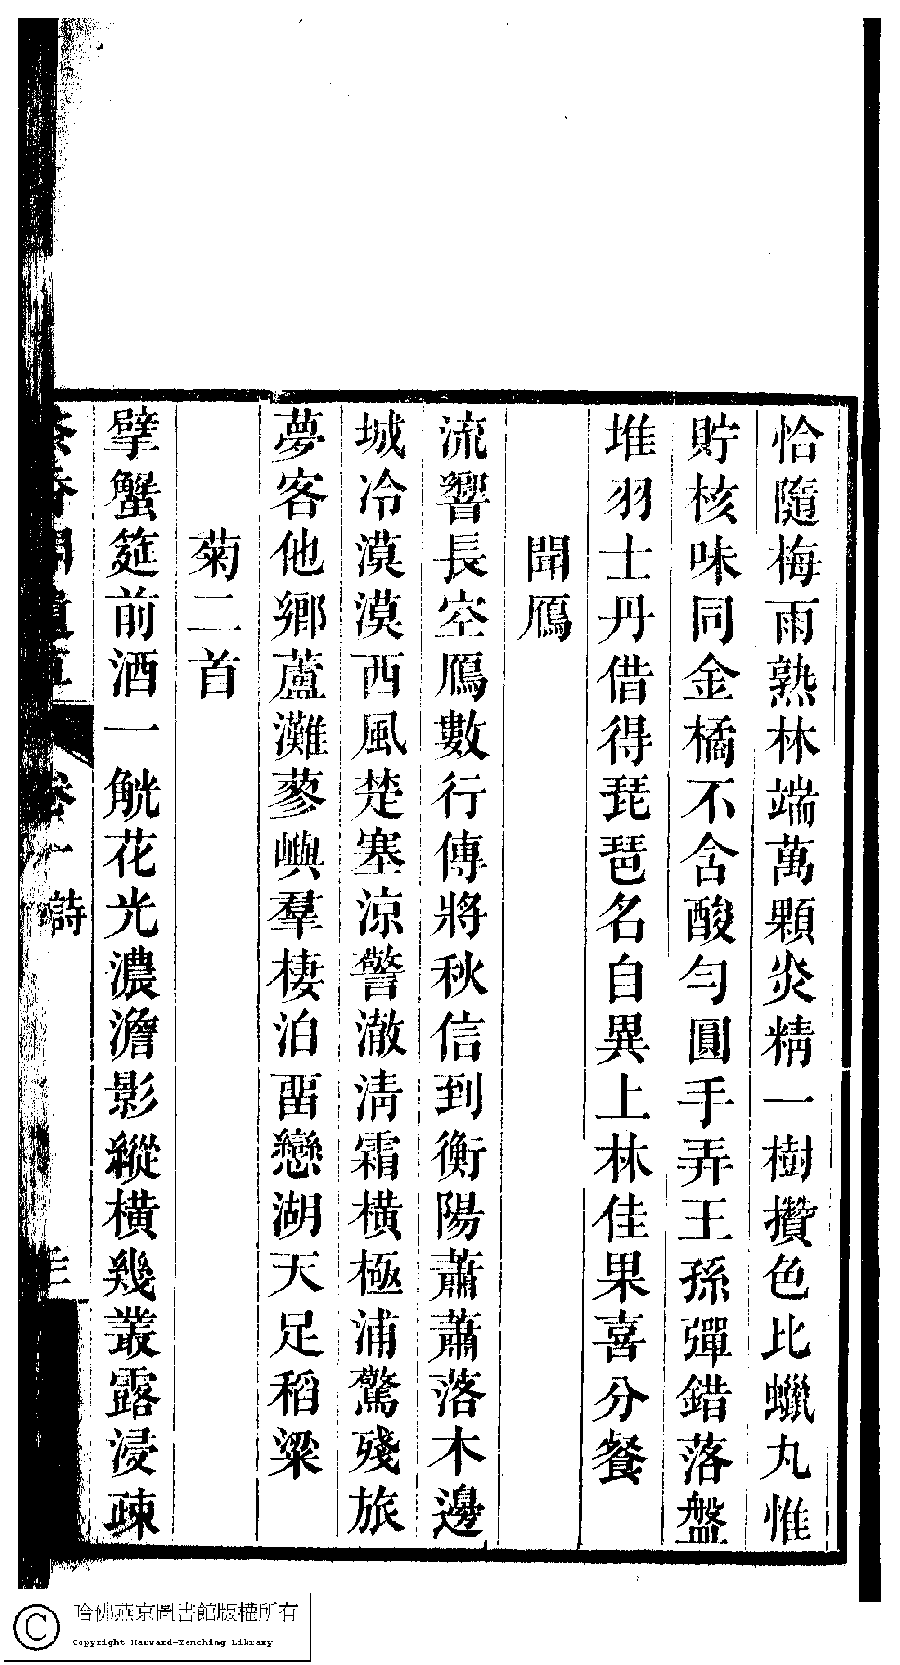 恰隨梅雨熟林端萬顆炎精一樹攢色比蠟丸惟
貯核味同金橘不含酸勻圓手弄王孫彈錯落盤
堆羽士丹借得琵琶名自異上林佳果喜分餐
聞鴈
流響長空鴈數行傳將秋信到衡陽蕭蕭落木邊
城冷漠漠西風楚塞涼警澈清霜橫極浦驚殘旅
夢客他鄉蘆灘蓼嶼羣棲泊畱戀湖天足稻粱
菊二首
擘蟹筵前酒一觥花光濃澹影縱橫幾叢露浸疎
詩
哈佛燕京圖書館版權所有
Copyright Harvard-Yenching Library